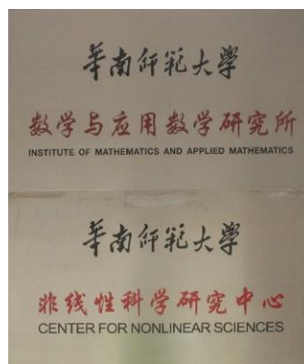 华南师范大学
数学与应用数学研究所
INSTITUTE OF MATHEMATICS AND APPLIED MATHEMATICS
华南师范大学
非线性科学研究中心
CENTER FOR NONLINEAR SCIENCES